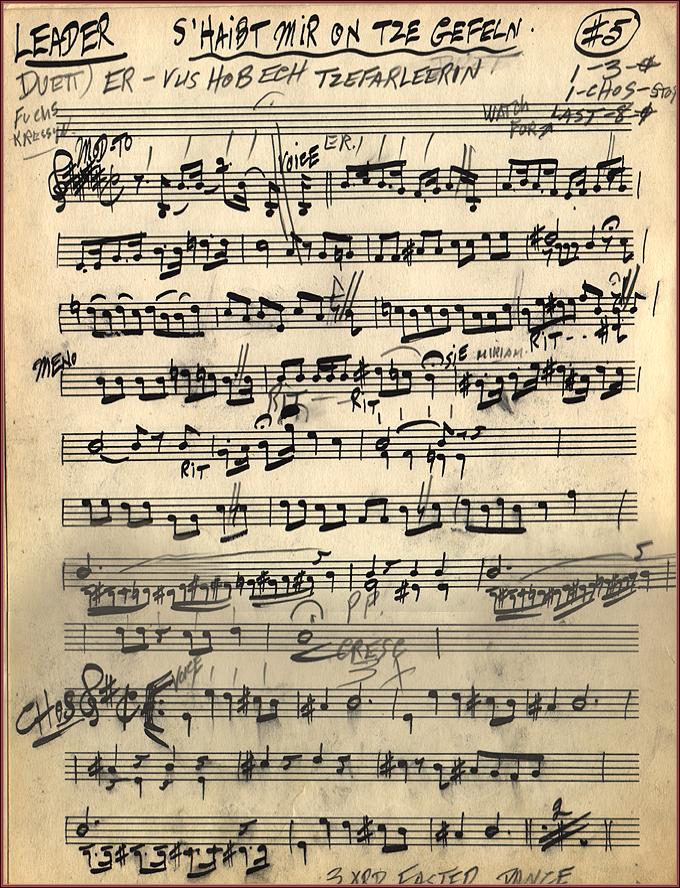 LEADER S'HAIBT MIR ON TZE GEFELN. #5
DUETT) ER - VUS HOB ECH TZEFARLEERIN
1-3-𝄌
1-CHOS-STOP
FUCHS
KRESSYN.
WATCH FOR LAST-8-𝄌
MOD-TO
VOICE
ER.)
RIT--
MENO
RIT
RIT
SIE MIRIAM.
RIT
P.P.
CRESC
3X
CHOS
VOICE
2
3 XRD FASTER DANCE